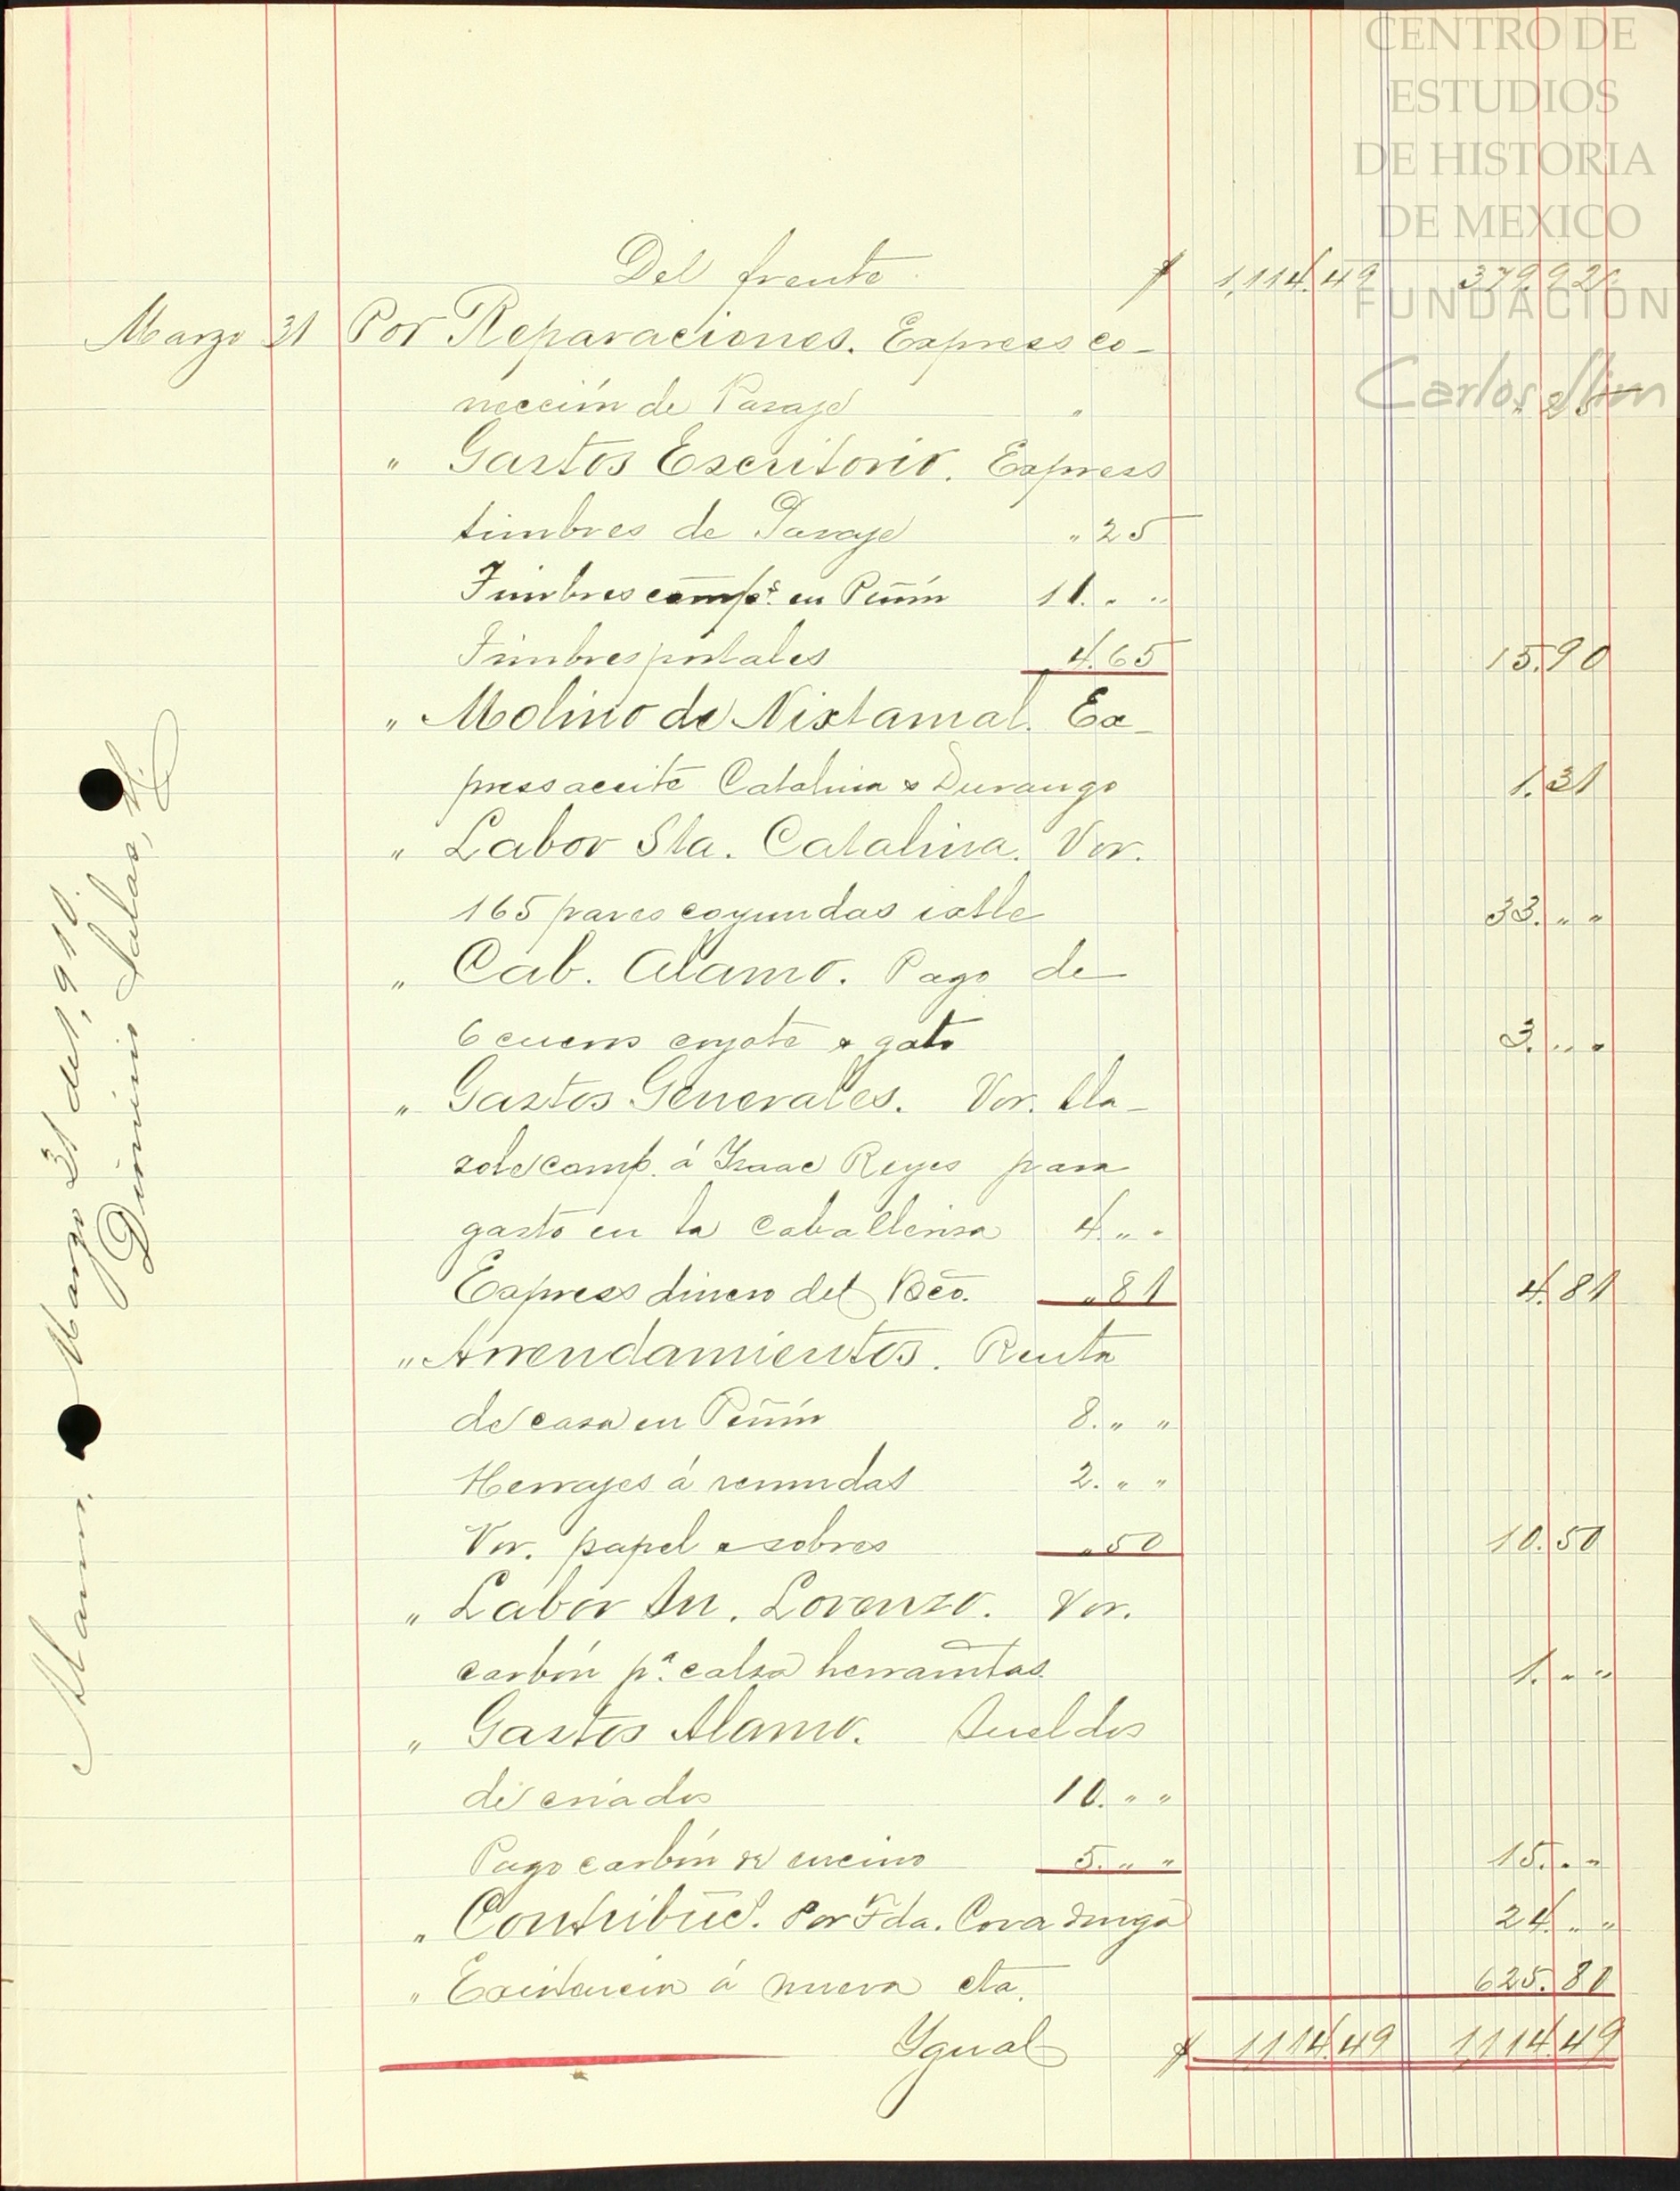 CENTRO DE
ESTUDIOS
DE HISTORIA
DE MEXICO
FUNDACIÓN
Carlos Slim
Del frente $ 1,114.49 379.92
Marzo 31 Por Reparaciones. Express co-
nección de Pasaje "
" Gastos Escritorio. Express
timbres de Pasaje " 25
Timbres comps. en Peñón 11. " "
Timbres postales 4.65 15.90
" Molino de Nixtamal. Ex-
press aceite Catalina & Durango 1.31
" Labor Sta. Catalina. Vor.
165 pares coyundas ixtle 33. " "
" Cab. Alamo. Pago de
6 cueros coyote & gato 3. " "
" Gastos Generales. Vor. tla-
zole comp. á Isaac Reyes para
gasto en la caballeriza 4. " "
Express dinero del Bco. " 81 4.81
" Arrendamientos. Renta
de casa en Peñón 8. " "
Herrajes á remudas 2. " "
Vor. papel & sobres " 50 10.50
" Labor Sn. Lorenzo. Vor.
carbón pa. calza herramtas. 1. " "
" Gastos Alamo. Sueldos
de criados 10. " "
Pago carbón de encino 5. " " 15. " "
" Contribuc. Por Fda. Covadonga 24. " "
" Existencia á nueva cta. 625.80
Ygual $ 1,114.49 1,114.49
Alamo. Marzo 31 de 1,910.
Dionisio Salas,